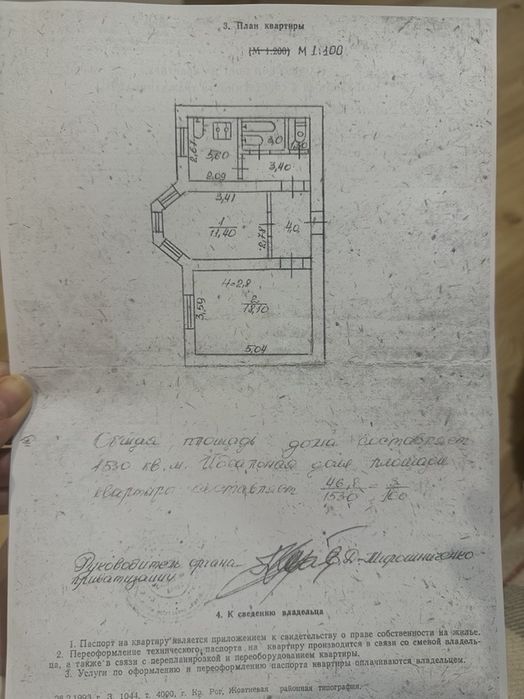 3. План квартиры
(М 1:200) М 1:100
5,60
2,67
2,09
3,0
3,40
3,41
1
11,40
2,78
4,0
Н=2,8
2
18,10
3,59
5,04
Общая площадь дома составляет
1530 кв.м. доля площади
квартиры составляет 46,8/1530 = 3/100
Руководитель органа
приватизации
Мирошниченко
4. К сведению владельца
1. Паспорт на квартиру является приложением к свидетельству о праве собственности на жилье.
2. Переоформление технического паспорта на квартиру производится в связи со сменой владель-
ца, а также в связи с перепланировкой и переоборудованием квартиры.
3. Услуги по оформлению и переоформлению паспорта квартиры оплачиваются владельцем.
1993 г. З. 1044, т. 4000, г. Кр. Рог, Жовтневая районная типография.